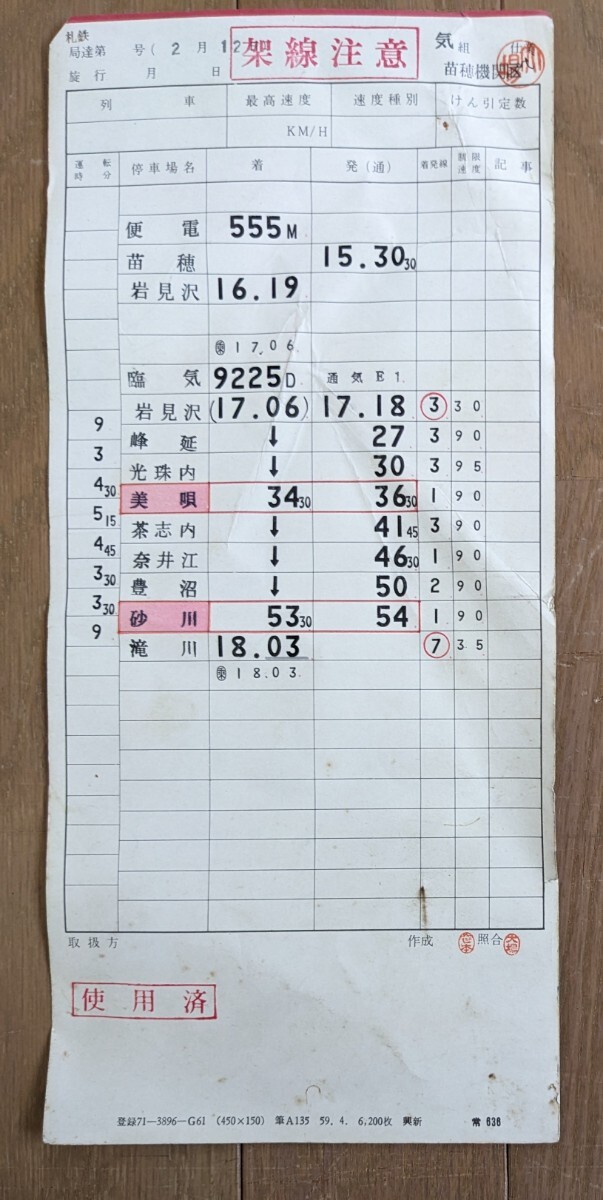 札鉄
局達第 号( 2月12 架線注意 気組 仕
施行 月 日 苗穂機関区
列 車 最高速度 速度種別 けん引定数
KM/H
運転時分 停車場名 着 発(通) 着発線 制限速度 記事
便電 555M
苗穂 15.30 30
岩見沢 16.19
17.06
臨気 9225D 通気E1
岩見沢 (17.06) 17.18 ③ 30
9
峰延 ↓ 27 3 90
3
光珠内 ↓ 30 3 95
4 30
美唄 34 30 36 30 1 90
5 15
茶志内 ↓ 41 45 3 90
4 45
奈井江 ↓ 46 30 1 90
3 30
豊沼 ↓ 50 2 90
3 30
砂川 53 30 54 1 90
9
滝川 18.03 ⑦ 35
18.03
取扱方 作成 照合
使用済
登録71-3896-G61 (450×150) 筆A135 59.4. 6,200枚 興新 常636